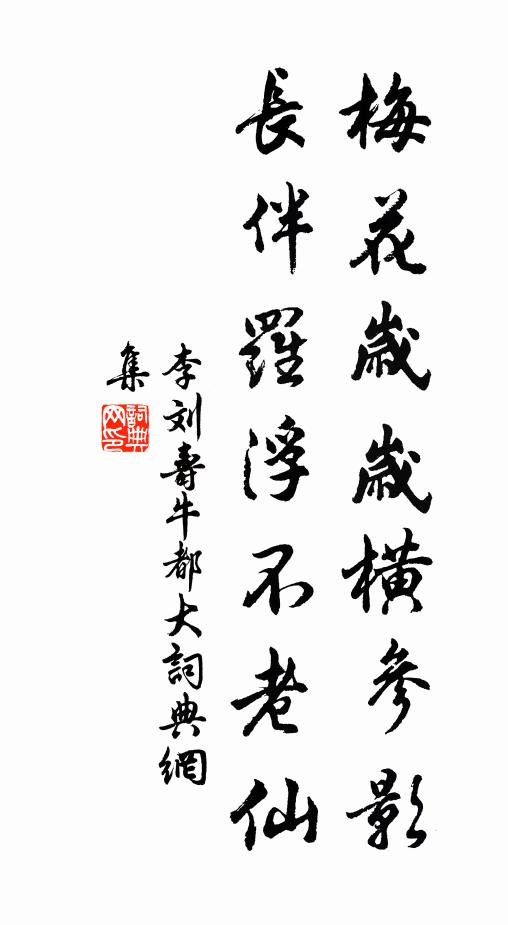 梅花歲歲橫參影
長伴羅浮不老仙
李刘壽牛都大詞典網
集
詞典
网印